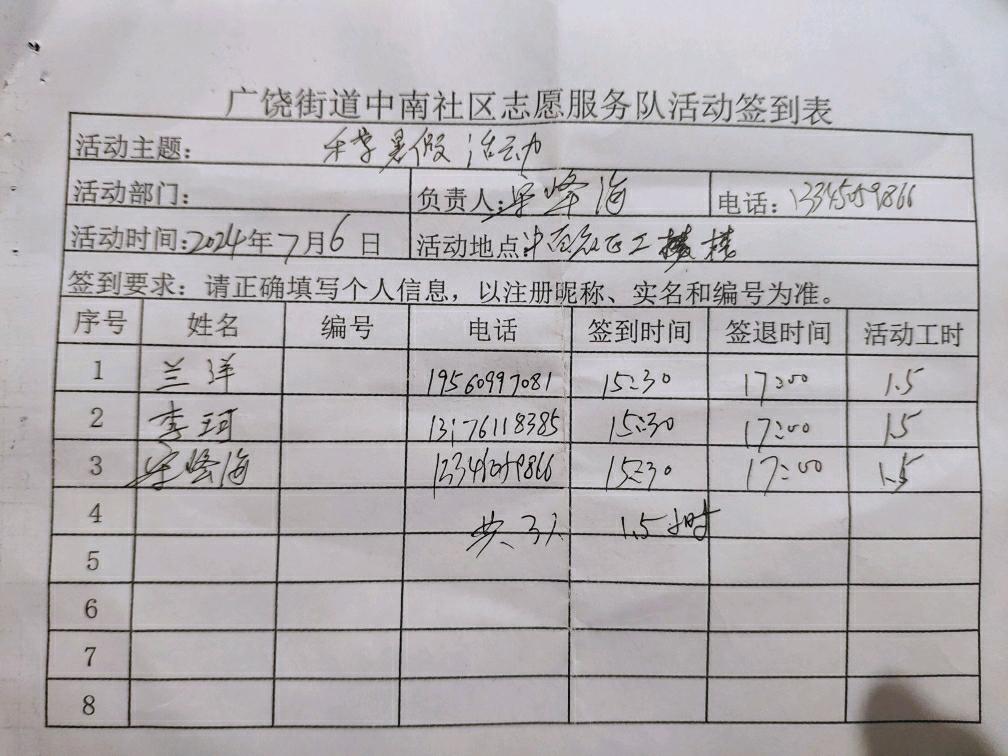 广饶街道中南社区志愿服务队活动签到表
活动主题: 乐学暑假 活动
活动部门: 负责人: 宋峰海 电话: 13345059866
活动时间: 2024年7月6日 活动地点:
签到要求: 请正确填写个人信息，以注册昵称、实名和编号为准。
序号 姓名 编号 电话 签到时间 签退时间 活动工时
1 兰洋 19560997081 15:30 17:00 1.5
2 李珂 13176118385 15:30 17:00 1.5
3 宋峰海 13345059866 15:30 17:00 1.5
4 共3人 1.5小时
5
6
7
8